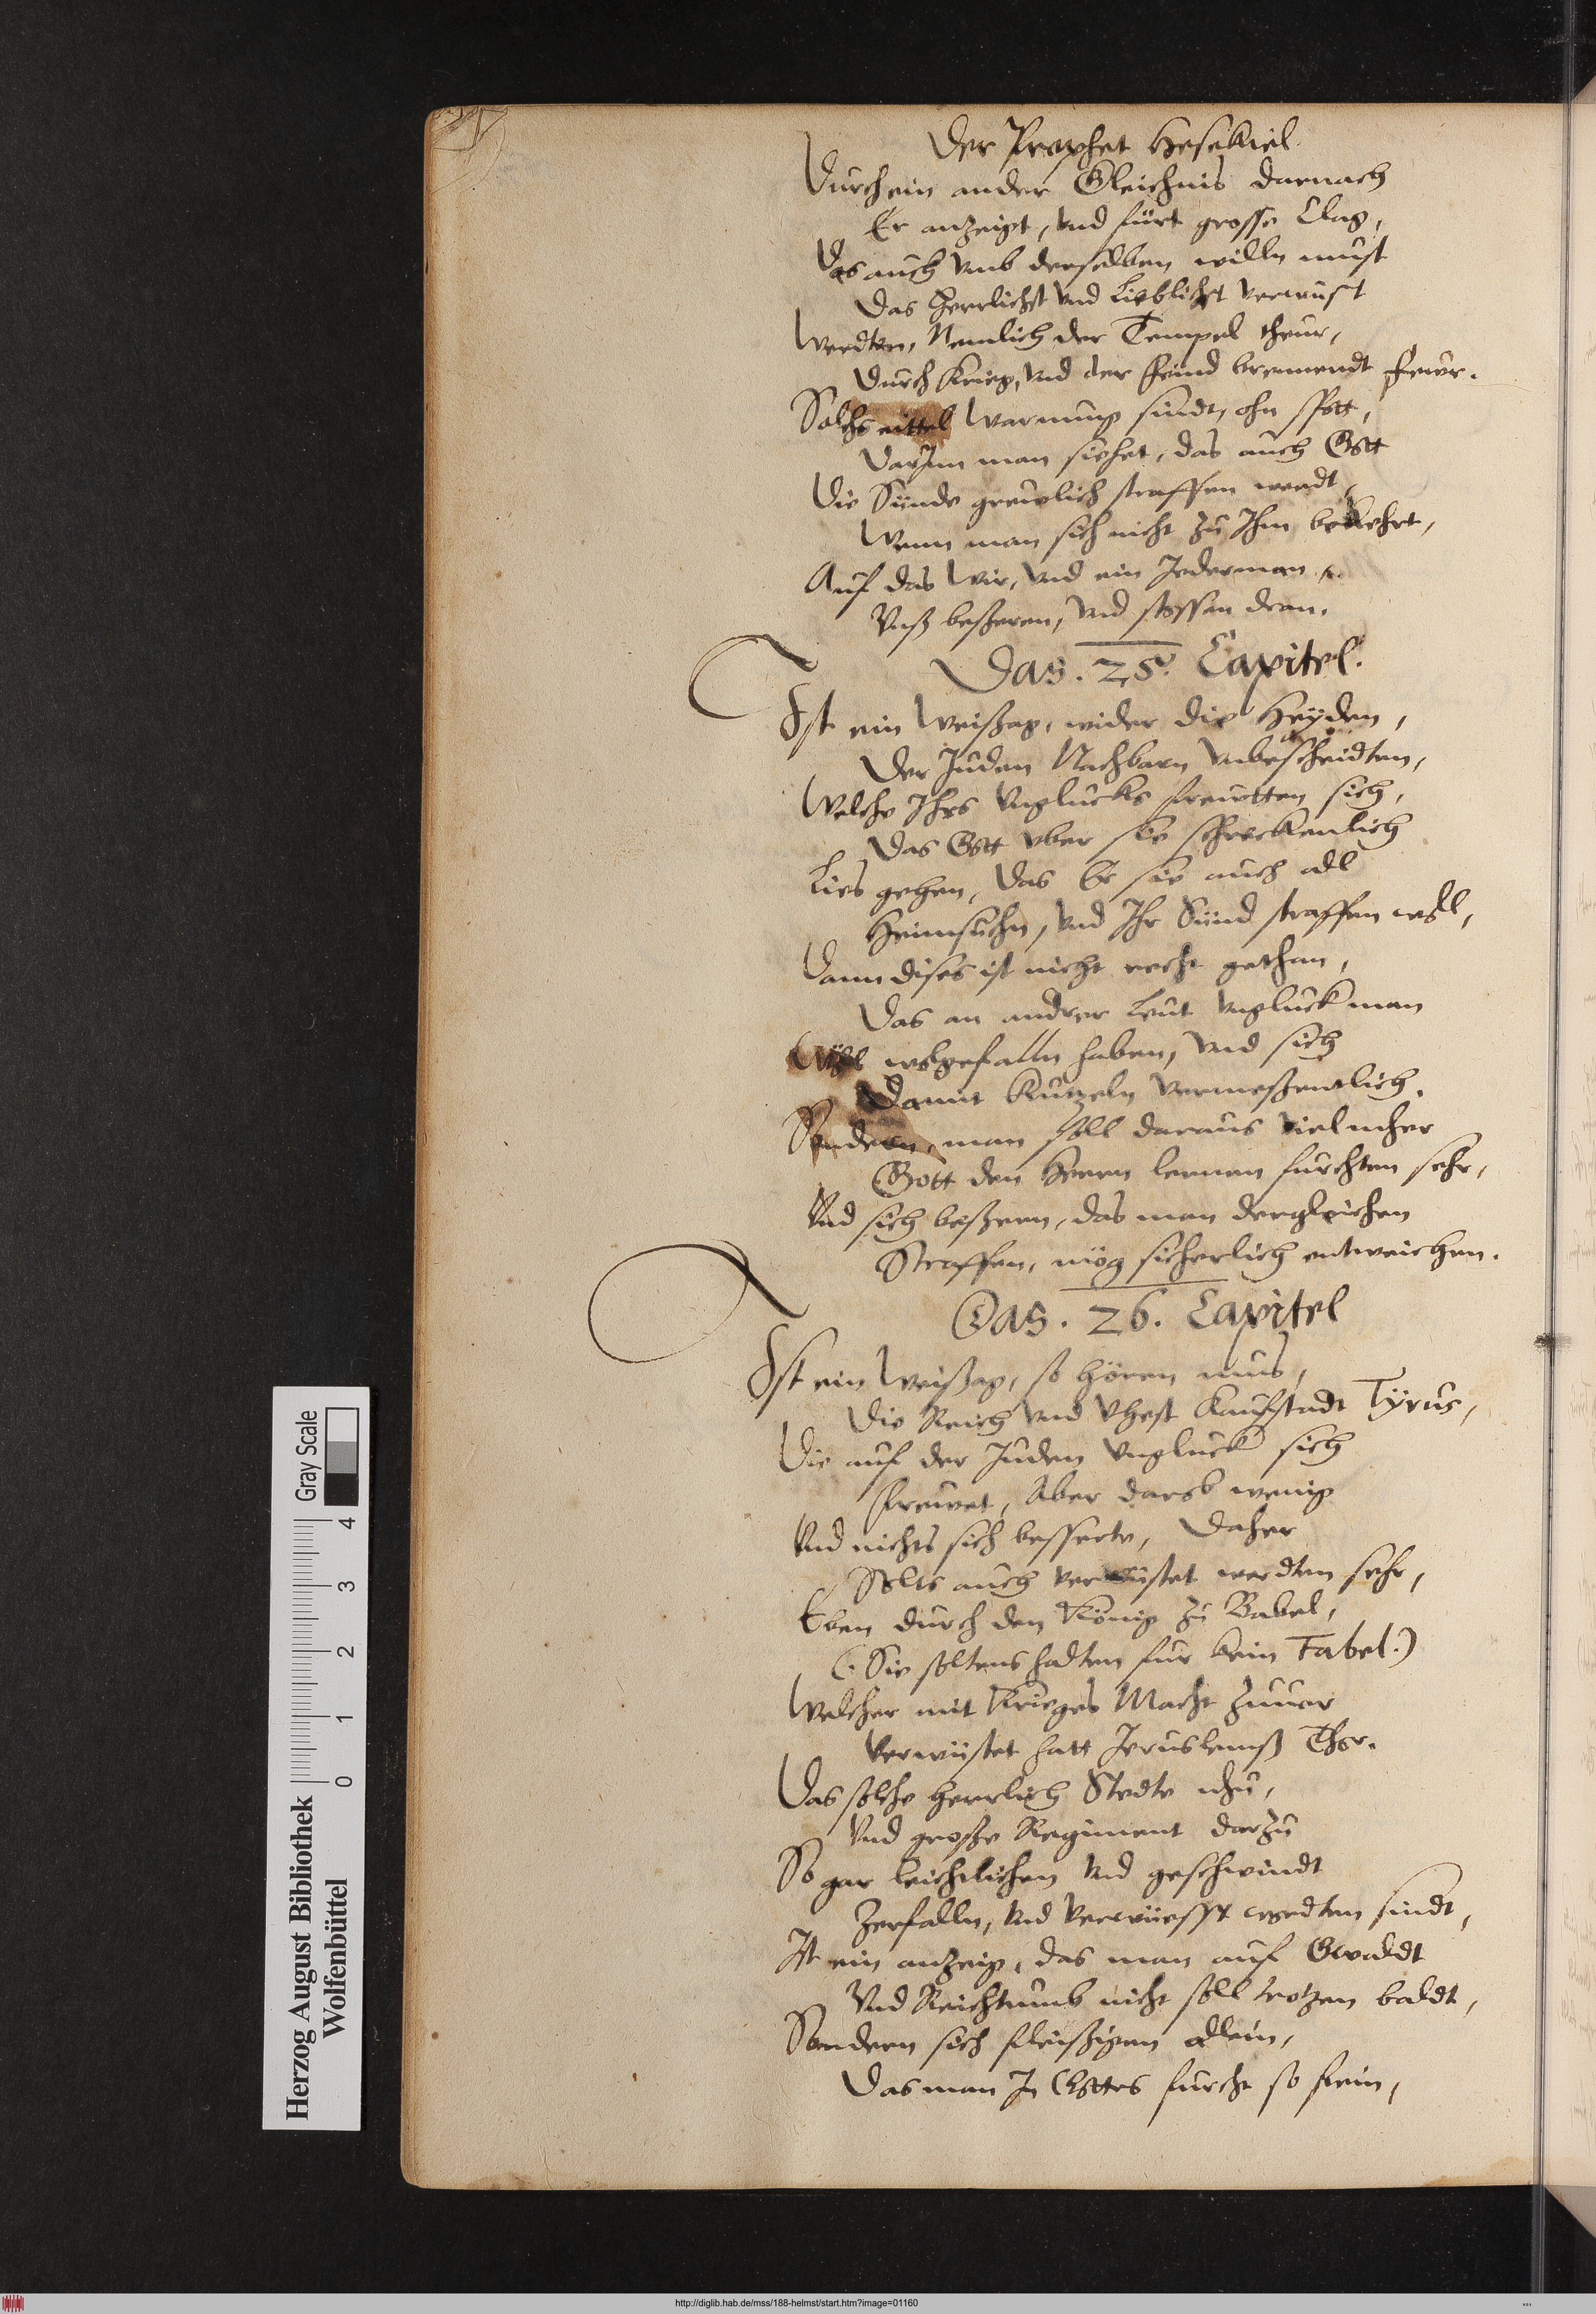 Der Prophet Hesekiel.
Durch ein ander Gleichnis darnach
Er anzeigt, vnd fürt grosse Clag,
Das auch vmb derselben willn must
Das Herrlichst vnd Lieblichst verwust
Werdten, Nemlich der Tempel theur,
Durch Krieg, vnd der feind brennendt fewr.
Solchs eittel Warnung sindt, ohn spott,
Darinn man siehet, das auch Gott
Die Sünde greuwlich straffen werdt,
Wenn man sich nicht zu Ihm bekehrt,
Auf das Wir, vnd ein Jederman,
Vnß beßeren, vnd stossen dran.
Das. 25. Capitel.
Ist ein Weißag, wider die Heyden,
Der Juden Nachbarn vnbescheidten,
Welche Ihrs Vnglucks freuwtten sich,
Das Gott vber sie schreckenlich
Lies gehen, Das Er sie auch all
Heimsuchn, vnd Ihr Sünd straffen woll,
Dann dises ist nicht recht gethan,
Das an andrer Leut vngluck man
Wöhl wolgefalln haben, vnd sich
Damit Kutzeln vermeßentlich.
Sondern, man soll daraus viel meher
Gott den Herrn lernen furchten sehr,
Vnd sich beßeren, das man dergleichen
Straffen, mög sicherlich entweichen.
Das. 26. Capitel
Ist ein Weißag, so hören mus,
Die Reich vnd Vhest Kaufstadt Tyrus,
Die auf der Juden Vngluck sich
frewet, Aber darob wenig
Vnd nichts sich besserte, Daher
Solts auch verwüstet werdten sehr,
Eben durch den König zu Babel,
(Sie soltens halten fur kein Fabel.)
Welcher mit Krieges Macht zuuor
Verwüstet hatt Jeruslemß Thor.
Das solche herrlich Stedte nhu,
Vnd große Regiment darzu
So gar leichtlichen vnd geschwindt
Zerfalln, vnd verwüesst wordten sindt,
Ist ein anzeig, das man auf Gwaldt
Vnd Reichtumb nicht soll trotzen baldt,
Sondern sich fleißigen allein,
Das man In Gottes furcht so fein,
Herzog August Bibliothek
Wolfenbüttel
0 1 2 3 4
Gray Scale
http://diglib.hab.de/mss/188-helmst/start.htm?image=01160